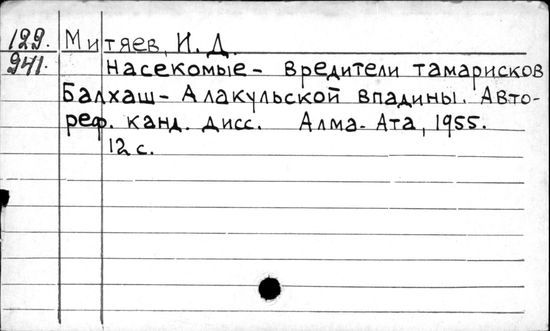 129. Митяев, И. Д.
941. Насекомые - вредители тамарисков
Балхаш - Алакульской впадины. Авто-
реф. канд. дисс. Алма-Ата, 1955.
12 с.